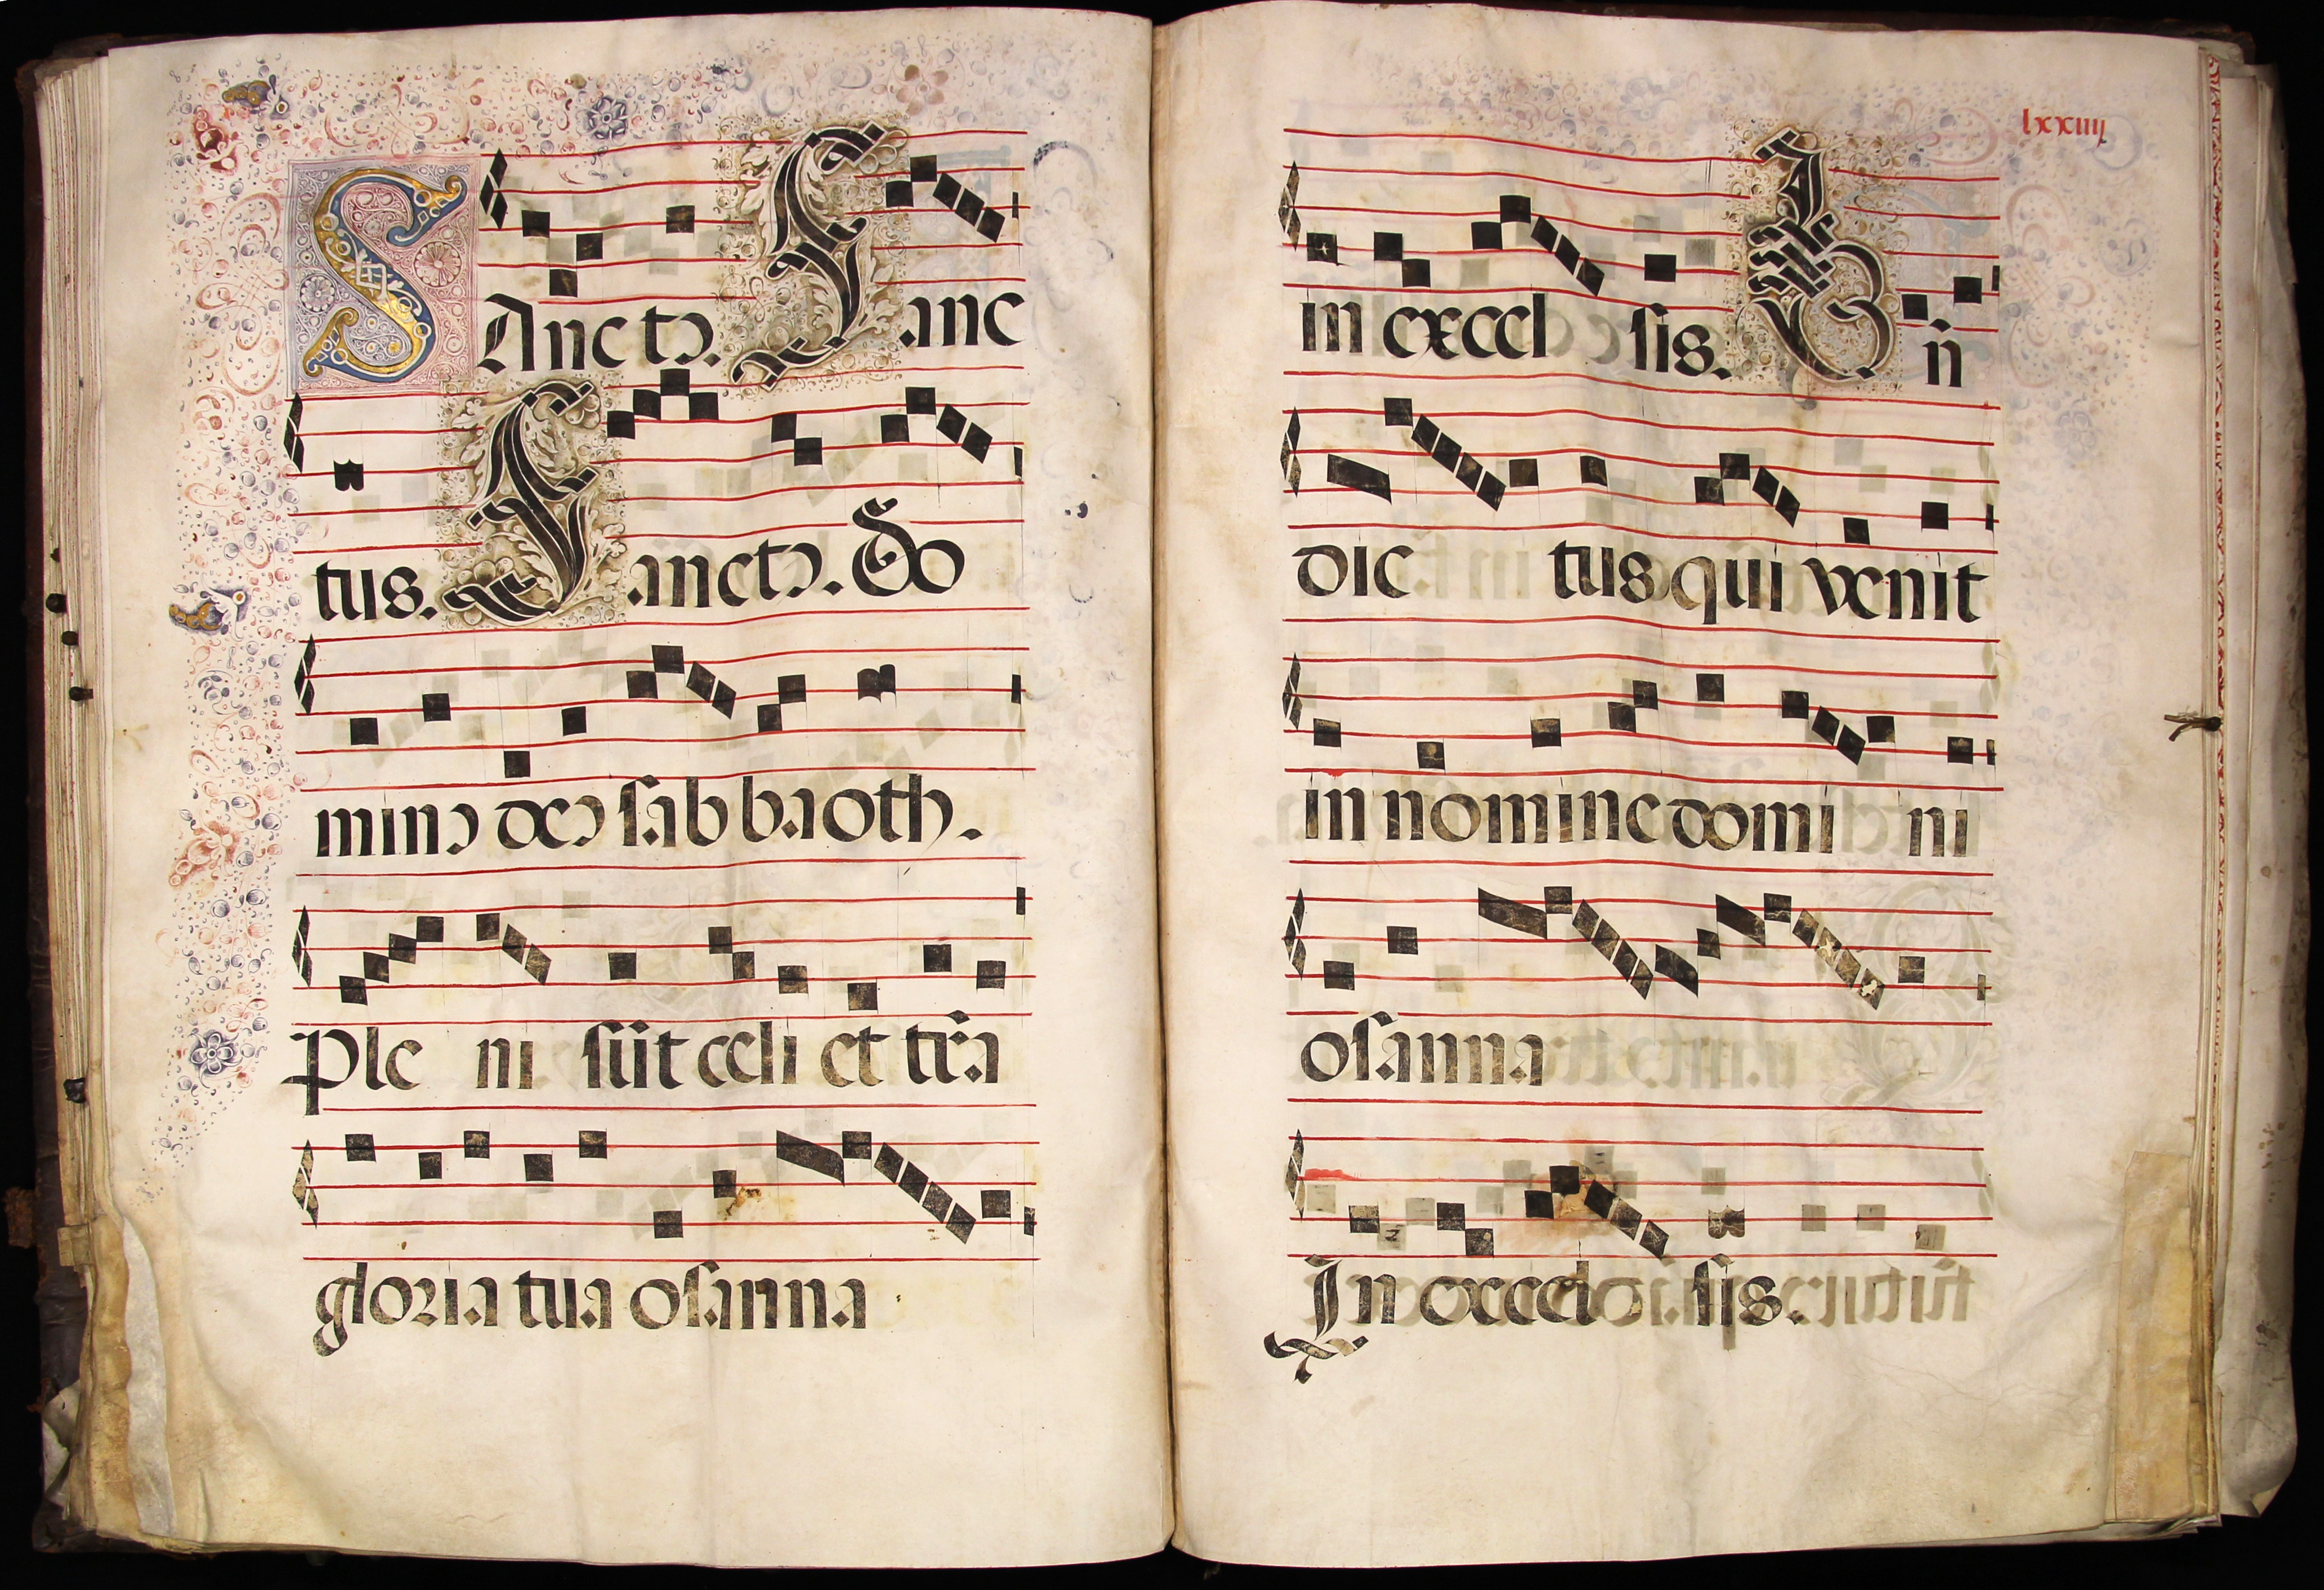 SAnctꝰ. Sanc
tus. Sanctꝰ. Do
minꝰ deꝰ sab baoth.
Ple ni sũt celi et tr̃a
gloria tua osanna
lxxiiij
in excel sis. Bñ
dic tus qui venit
in nomine domi ni
osanna
In excel sis.